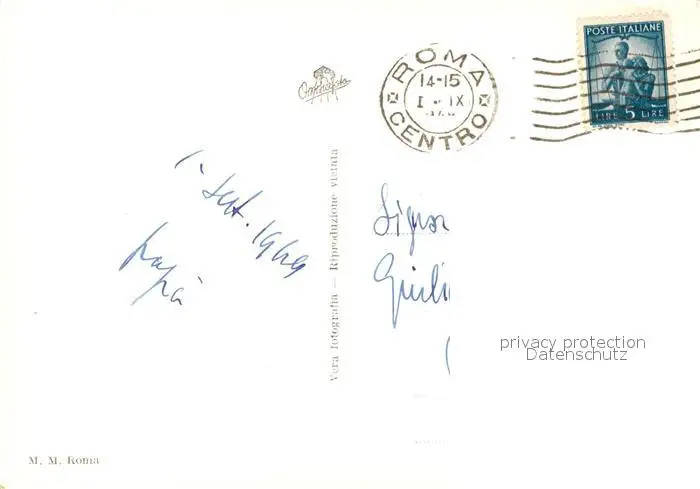 POSTE ITALIANE
LIRE 5 LIRE
ROMA
14-15
I · IX
CENTRO
1. Set. 1949
papà
Vera fotografia — Riproduzione vietata
Signor
privacy protection
Datenschutz
M. M. Roma